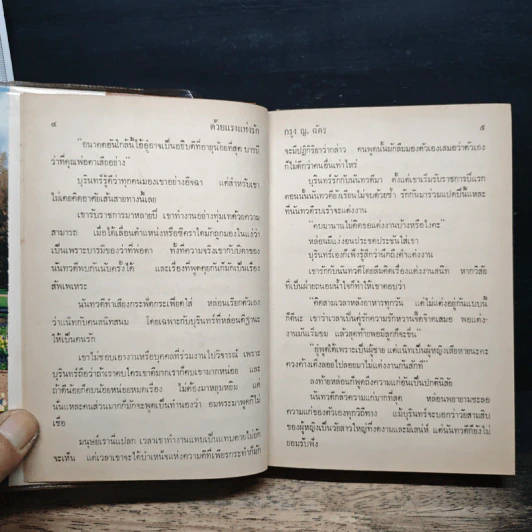 ๔ ด้วยแรงแห่งรัก
"อนาคตอันใกล้นี้ไอ้ภู่อาจเป็นอธิบดีที่อายุน้อยที่สุด บารมี
ว่าที่คุณพ่อตาเสียอย่าง"
บุรินทร์รู้ดีว่าทุกคนมองเขาอย่างอิจฉา แต่สำหรับเขา
ไม่เคยคิดอาศัยเส้นสายทางนี้เลย
เขารับราชการมาหลายปี เขาทำงานอย่างทุ่มเทด้วยความ
สามารถ เมื่อได้เลื่อนตำแหน่งหรือซีคราใดมักถูกมองในแง่ว่า
เป็นเพราะบารมีของว่าที่พ่อตา ทั้งที่ความจริงเขากับบิดาของ
นันทวดีพบกันนับครั้งได้ และเรื่องที่พูดคุยกันก็มักเป็นเรื่อง
สัพเพเหระ
นันทวดีทำเสียงกระฟัดกระเฟียดใส่ หล่อนเรียกตัวเอง
ว่าแน็ทกับคนสนิทสนม โดยเฉพาะกับบุรินทร์ที่หล่อนตีฐานะ
ให้เป็นคนรัก
เขาไม่ชอบเอางานหรือบุคคลที่ร่วมงานไปวิจารณ์ เพราะ
บุรินทร์ถือว่าถ้าเราคบใครเขาดีมากเราก็คบเขามากหน่อย และ
ถ้าดีน้อยก็คบน้อยหน่อยหมดเรื่อง ไม่ต้องมาหยุมหยิม แต่
นั่นแหละคนส่วนมากก็มักจะพูดเป็นทำนองว่า อมพระมาพูดก็ไม่
เชื่อ
มนุษย์เรานั้นแปลก เวลาเขาทำงานแทบเป็นแทบตายไม่ยัก
จะเห็น แต่เวลาเขาจะได้บำเหน็จแห่งความดีที่เพียรกระทำก็มัก
กรุง ญ. ฉัตร ๕
จะมีปฏิกิริยาว่ากล่าว คนพูดนั้นมักลืมมองตัวเองเสมอว่าตัวเอง
ก็ไม่ดีกว่าคนอื่นเท่าไหร่
บุรินทร์รักกับนันทวดีมา ตั้งแต่เขาเริ่มรับราชการปีแรก
ตอนนั้นนันทวดียังเรียนไม่จบด้วยซ้ำ รักกันมาร่วมแปดปีนี่แหละ
ที่นันทวดีรบเร้าจะแต่งงาน
"คบมานานไม่คิดขอแต่งงานบ้างหรือไงคะ"
หล่อนมีแง่งอนประชดประชันใส่เขา
บุรินทร์เองก็เพิ่งรู้สึกว่านึกถึงคำแต่งงาน
เขารักกับนันทวดีโดยลืมคิดเรื่องแต่งงานสนิท หากวิสัย
ที่เป็นฝ่ายถนอมน้ำใจก็ทำให้เขาตอบว่า
"คิดสามเวลาหลังอาหารทุกวัน แต่ไม่แต่งอยู่กันแบบนี้
ก็ดีนะ เขาว่าเวลาเป็นคู่รักความรักหวานจี๊ดจ๊าดเสมอ พอแต่ง-
งานมันเริ่มขม แล้วสุดท้ายพอมีลูกก็จะขื่น"
"ภู่พูดได้เพราะเป็นผู้ชาย แต่แน็ทเป็นผู้หญิงเสียหายนะคะ
ควงค้างเติ่งลอยไปลอยมาไม่แต่งงานกันสักที"
ลงท้ายหล่อนก็พูดถึงความแก่อันเป็นปกตินิสัย
นันทวดีกลัวความแก่มากที่สุด หล่อนพยายามชะลอ
ความแก่ของตัวเองทุกวิถีทาง แม้บุรินทร์จะบอกว่าวัยสามสิบ
ของผู้หญิงเป็นวัยสาวใหญ่ที่งดงามและมีเสน่ห์ แต่นันทวดีก็ยังไม่
ยอมรับฟัง